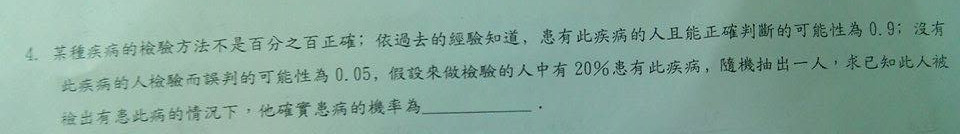 4. 某種疾病的檢驗方法不是百分之百正確；依過去的經驗知道，患有此疾病的人且能正確判斷的可能性為 0.9；沒有
此疾病的人檢驗而誤判的可能性為 0.05，假設來做檢驗的人中有 20%患有此疾病，隨機抽出一人，求已知此人被
檢出有患此病的情況下，他確實患病的機率為__________．